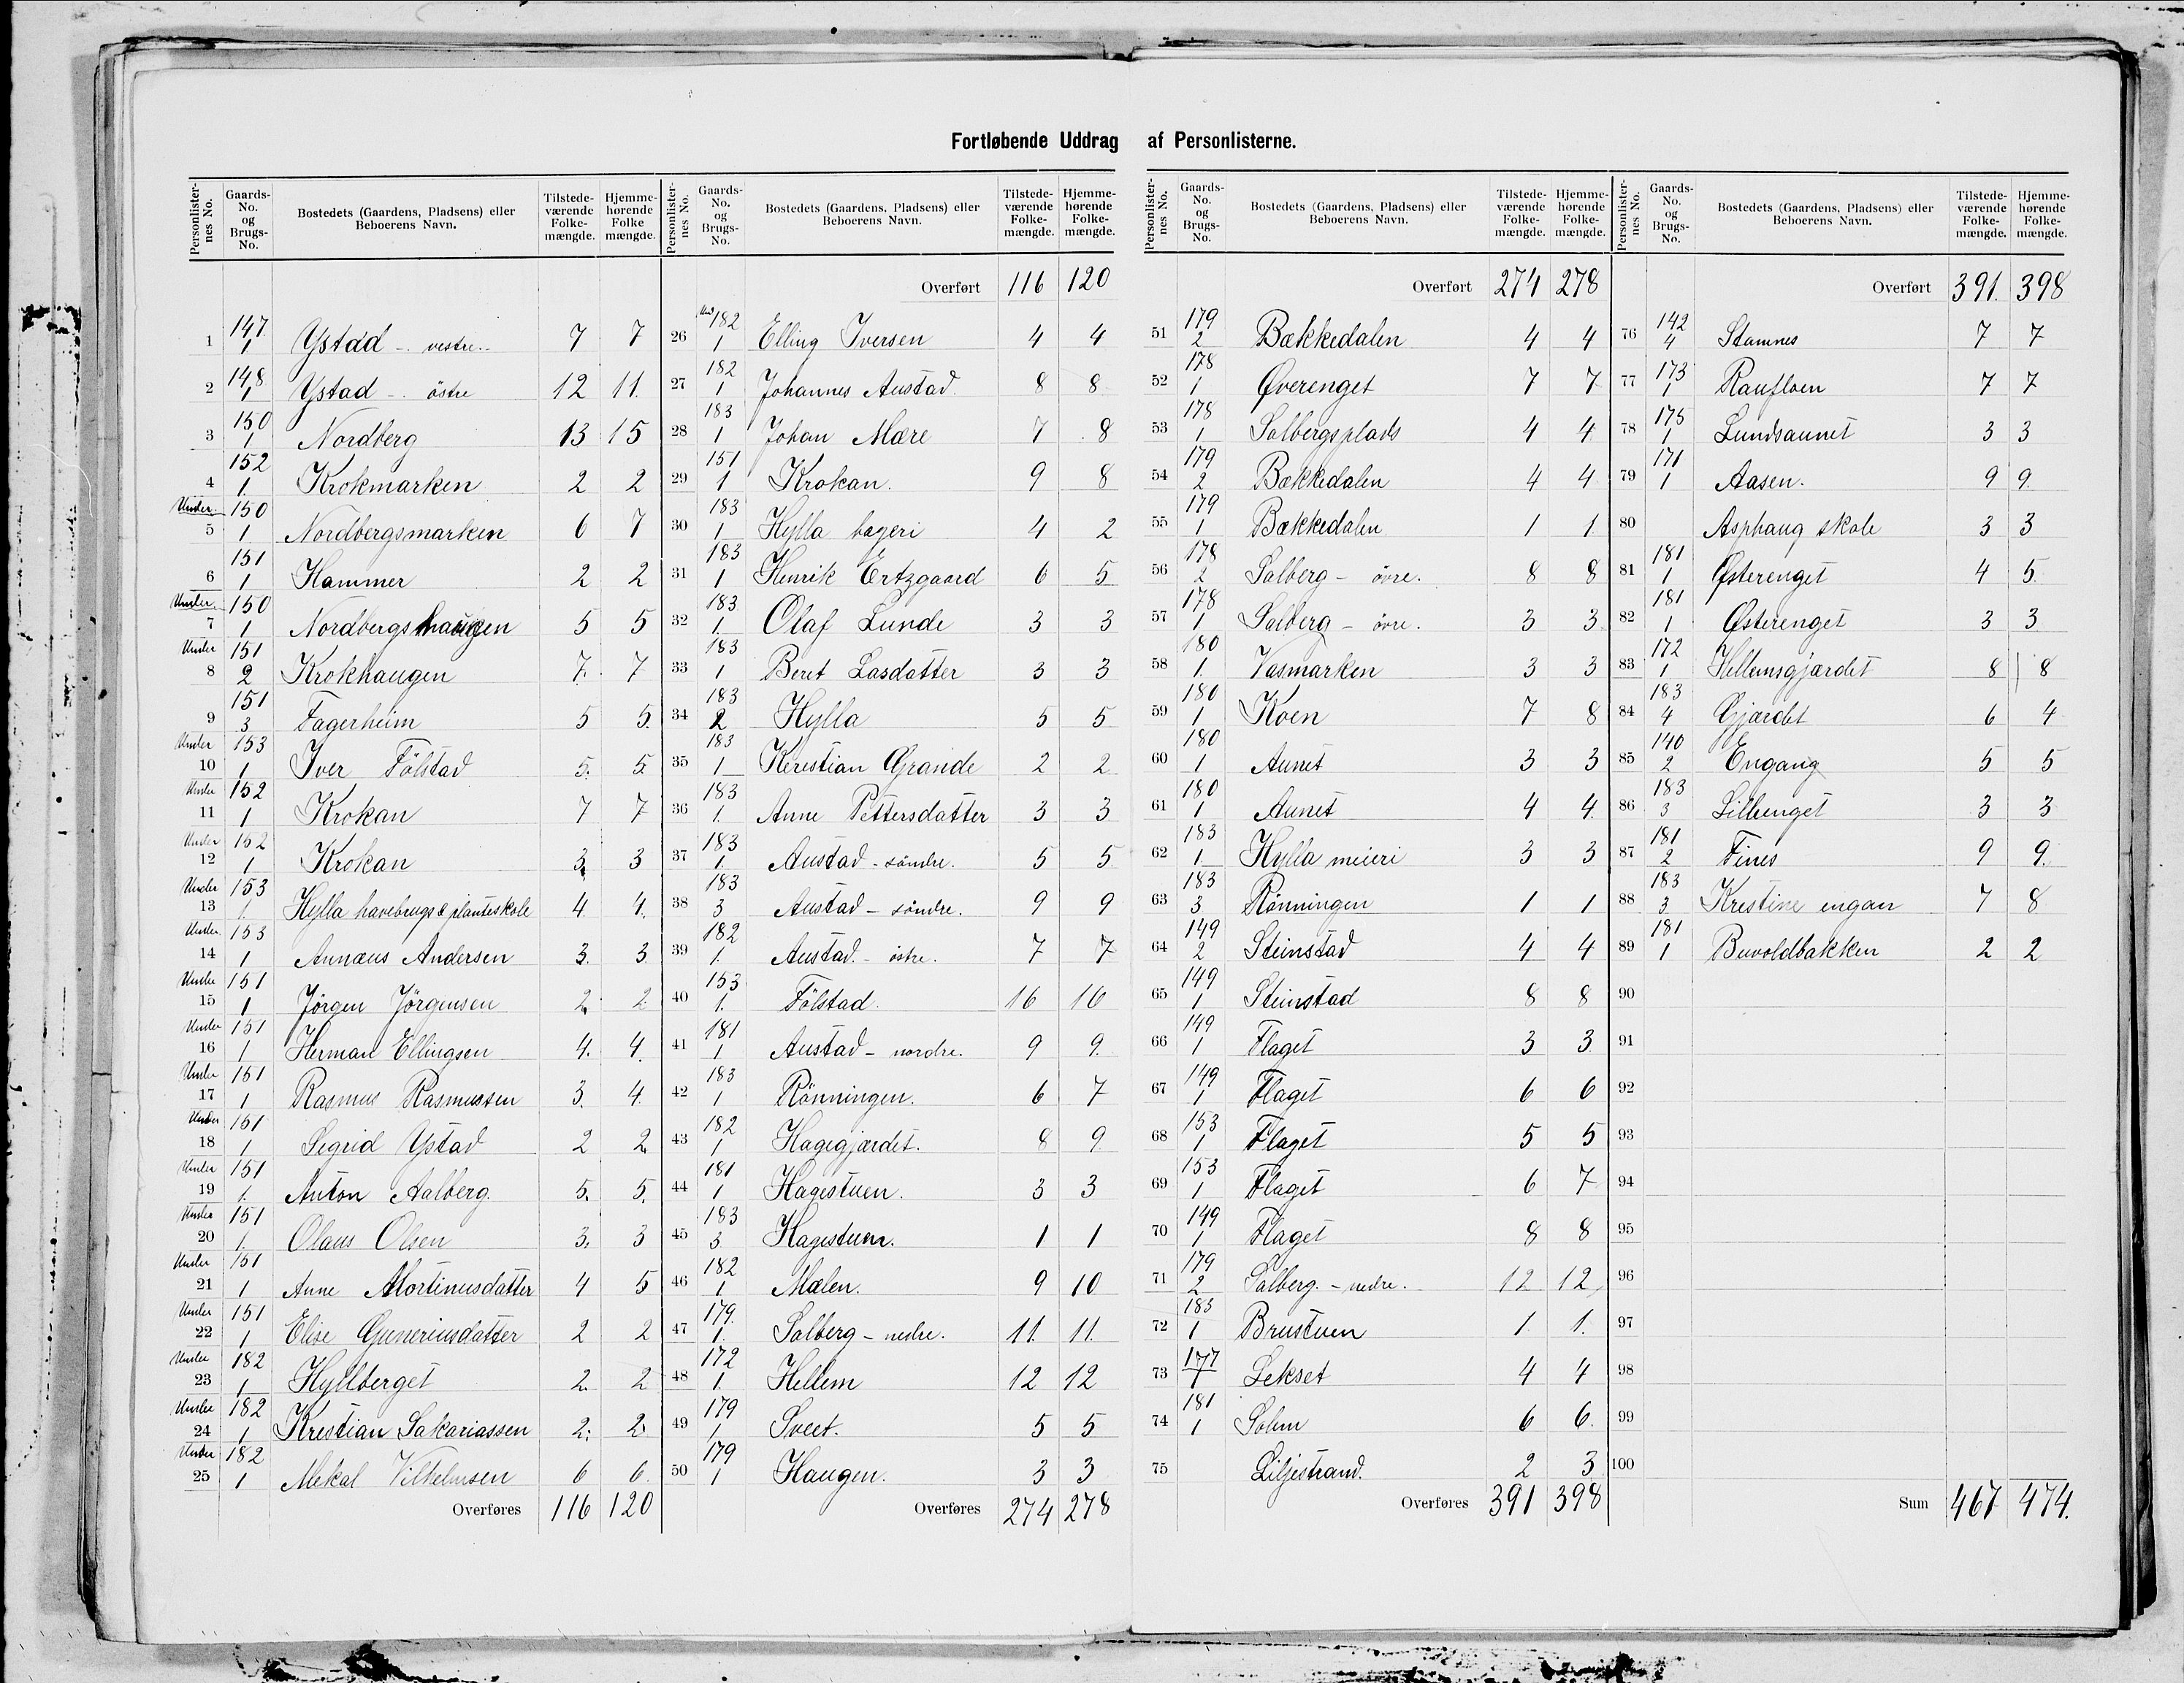 Fortløbende Uddrag af Personlisterne.
Personlister-nes No. Gaards-No. og Brugs-No. Bostedets (Gaardens, Pladsens) eller Beboerens Navn. Tilstede-værende Folke-mængde. Hjemme-hørende Folke mængde.
1 147/1 Ystad - vestre. 7 7
2 148/1 Ystad - östre 12 11.
3 150/1 Nordberg 13 15
4 152/1. Krokmarken 2 2
Under 5 150/1 Nordbergsmarken 6 7
6 151/1 Hammer 2 2
Under 7 150/1 Nordbergshaugen 5 5
Under 8 151/2 Krokhaugen 7. 7
9 151/3 Fagerheim 5 5.
Under 10 153/1 Iver Fölstad 5. 5.
Under 11 152/1 Krokan 7 7
Under 12 152/1 Krokan 3. 3
Under 13 153/1. Hylla havebrugs & planteskole 4. 4.
Under 14 153/1 Annæus Andersen 3. 3
Under 15 151/1 Jörgen Jörgensen 2. 2
Under 16 151/1 Herman Ellingsen 4. 4.
Under 17 151/1 Rasmus Rasmussen 3. 4.
Under 18 151/1 Segrid Ystad 2 2.
Under 19 151/1. Anton Aalberg 5. 5.
Under 20 151/1. Olaus Olsen 3. 3
Under 21 151/1 Anne Mortinusdatter 4 5
Under 22 151/1 Elise Guneriusdatter 2 2
Under 23 182/1 Hyllberget 2. 2
Under 24 182/1 Krestian Sakariassen 2. 2.
Under 25 182/1 Mekal Vilhelmsen 6 6.
Overføres 116 120
Personlister-nes No. Gaards-No. og Brugs-No. Bostedets (Gaardens, Pladsens) eller Beboerens Navn. Tilstede-værende Folke-mængde. Hjemme-hørende Folke-mængde.
Overført 116 120
26 Und 182/1 Elling Iversen 4 4
27 182/1 Johannes Austad 8 8
28 183/1 Johan Mære 7 8
29 151/1 Krokan. 9 8
30 183/1 Hylla bageri 4 2
31 183/1 Henrik Ertzgaard 6 5
32 183/1. Olaf Lunde 3 3
33 183/1 Beret Lasdatter 3 3
34 183/2 Hylla 5 5
35 183/1 Kerestian Grande 2 2
36 183/1. Anne Pettersdatter 3 3
37 183/1. Austad - söndre. 5 5
38 183/3 Austad - söndre. 9 9
39 182/1. Austad - östre. 7 7
40 153/1. Fölstad. 16 16
41 181/1 Austad - nordre. 9 9.
42 183/1 Rönningen. 6 7
43 182/1 Hagegjærdet. 8 9
44 181/1 Hagestuen. 3 3
45 183/3 Hagestuen. 1 1
46 182/1 Mælen. 9 10
47 179/1. Salberg - nedre. 11. 11.
48 172/1. Hellem 12 12
49 179/1 Sveet. 5 5
50 179/1 Haugen. 3 3
Overføres 274 278
Personlister-nes No. Gaards-No. og Brugs-No. Bostedets (Gaardens, Pladsens) eller Beboerens Navn. Tilstede-værende Folke-mængde. Hjemme-hørende Folke-mængde.
Overført 274 278
51 179/2 Bækkedalen 4 4
52 178/1 Øverenget 7 7
53 178/1 Salbergsplads 4 4
54 179/2 Bækkedalen 4 4
55 179/1 Bækkedalen 1 1
56 178/2 Salberg - övre. 8 8
57 178/1 Salberg - övre. 3 3
58 180/1. Vasmarken 3 3
59 180/1 Koen 7 8
60 180/1 Aunet 3 3
61 180/1 Aunet 4 4.
62 183/1 Hylla meieri 3 3
63 183/3 Rönningen 1 1
64 149/2 Steinstad 4 4
65 149/1 Steinstad 8 8
66 149/1 Flaget 3 3
67 149/1 Flaget 6 6
68 153/1 Flaget 5 5
69 153/1 Flaget 6 7
70 149/1 Flaget 8 8
71 179/2 Salberg. - nedre. 12 12
72 183/1 Brustuen 1. 1.
73 177/1 Lekset 4 4
74 181/1 Solem 6 6.
75 Liljestrand. 2 3
Overføres 391 398
Personlister-nes No. Gaards-No. og Brugs-No. Bostedets (Gaardens, Pladsens) eller Beboerens Navn. Tilstede-værende Folke-mængde. Hjemme-hørende Folke-mængde.
Overført 391. 398
76 142/4 Stamnes 7 7
77 173/1 Raufloen 7 7
78 175/1 Lundsaunet 3 3
79 171/1 Aasen. 9 9.
80 Asphaug skole 3 3
81 181/1 Østerenget 4 5.
82 181/1 Østerenget 3 3
83 172/1 Hellemsgjærdet 8 8
84 183/4 Gjærdet 6 4
85 140/2 Engang 5 5
86 183/3 Lillenget 3 3
87 181/2 Fines 9 9.
88 183/3 Krestine engan 7 8
89 181/1 Buvoldbakken 2 2
90
91
92
93
94
95
96
97
98
99
100
Sum 467 474.